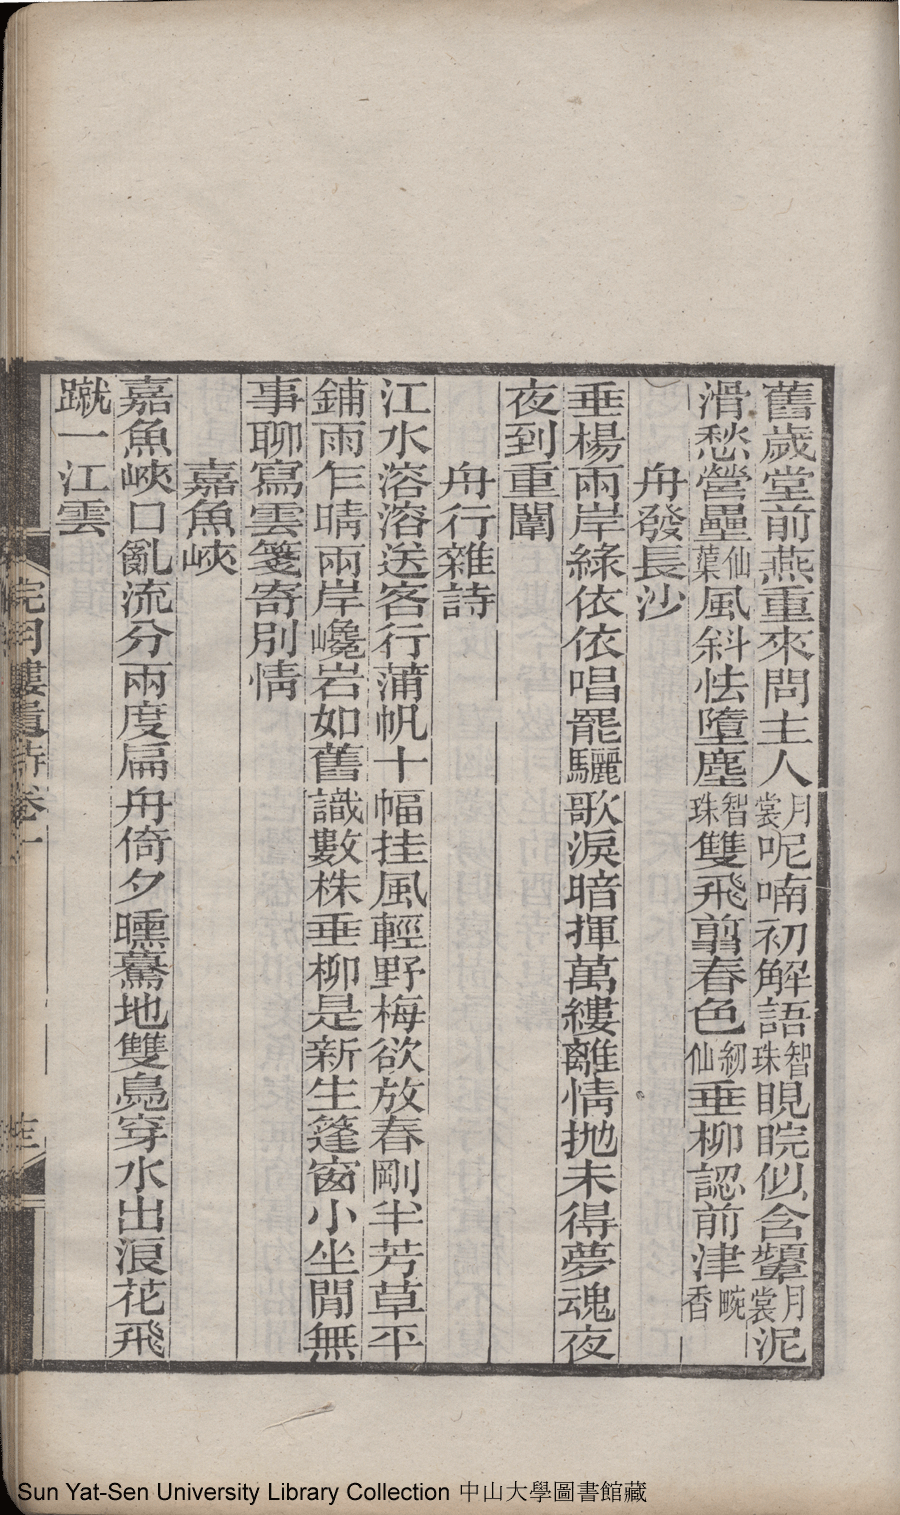 舊歲堂前燕重來問主人月裳呢喃初解語智珠睍睆似含顰月裳泥
滑愁營壘仙蕖風斜怯墮塵智珠雙飛翦春色紉仙垂柳認前津畹香
舟發長沙
垂楊兩岸綠依依唱罷驪歌淚暗揮萬縷離情抛未得夢魂夜
夜到重闈
舟行雜詩
江水溶溶送客行蒲帆十幅挂風輕野梅欲放春剛半芳草平
鋪雨乍晴兩岸巉岩如舊識數株垂柳是新生篷窗小坐閒無
事聊寫雲箋寄別情
嘉魚峽
嘉魚峽口亂流分兩度扁舟倚夕曛驀地雙鳧穿水出浪花飛
蹴一江雲
浣月樓遺詩卷一
Sun Yat-Sen University Library Collection 中山大學圖書館藏